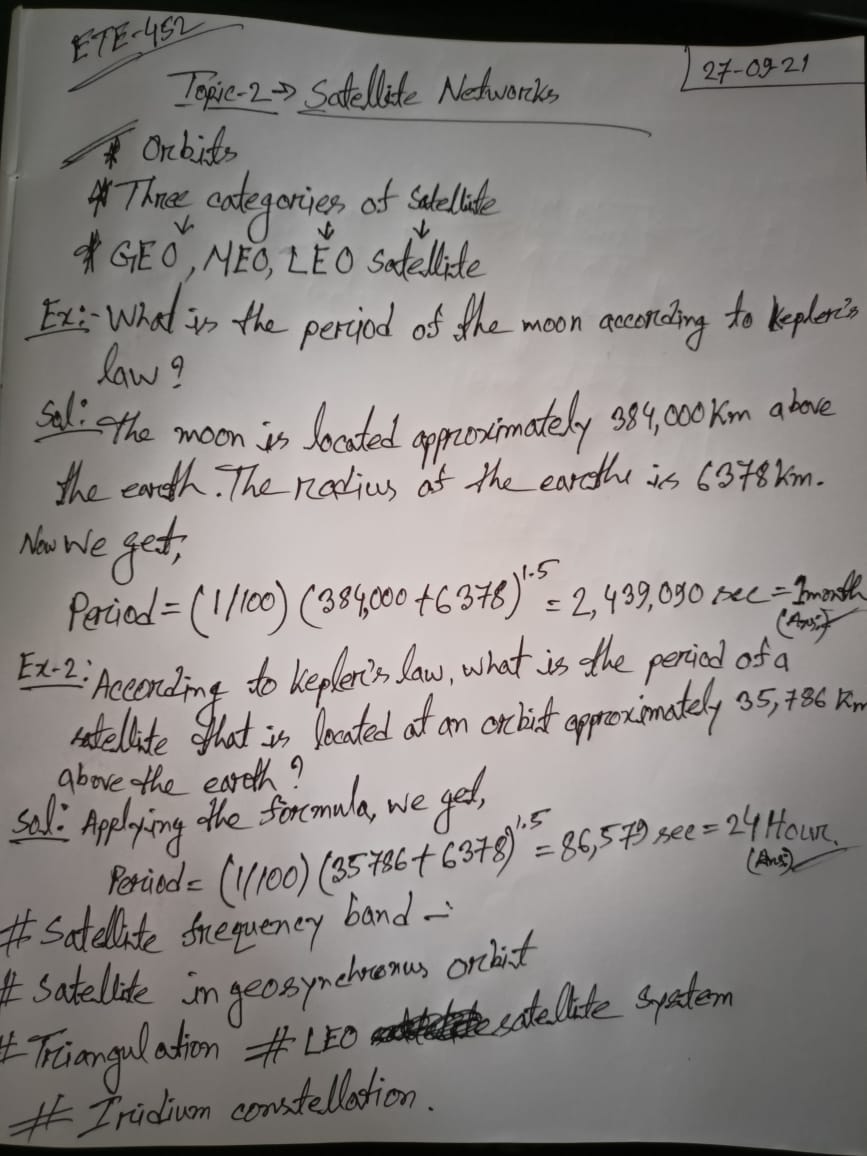 ETE-452
27-09-21
Topic-2→ Satellite Networks
* Orbits
* Three categories of Satellite
* GEO, MEO, LEO Satellite
Ex:- What is the period of the moon according to Kepler's
law?
Sol: The moon is located approximately 384,000 Km above
the earth. The radius of the earthe is 6378 km.
Now We get,
Period = (1/100) (384,000 + 6378)^1.5 = 2,439,090 sec = 1 month
(Ans:)
Ex-2: According to kepler's law, what is the period of a
satellite that is located at an orbit approximately 35,786 Km
above the earth?
Sol: Applying the formula, we get,
Period = (1/100) (35786 + 6378)^1.5 = 86,579 sec = 24 Hour.
(Ans:)
# Satellite frequency band -:
# Satellite in geosynchronus orbit
# Triangulation # LEO satellite system
# Iridium constellation.